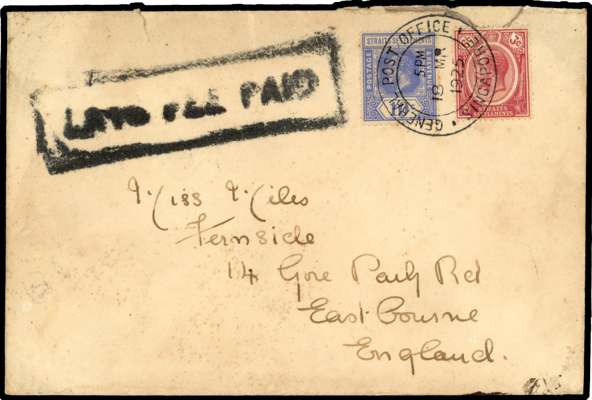 LATE FEE PAID
STRAITS SETTLEMENTS
POSTAGE
GENERAL POST OFFICE SINGAPORE
5 PM
18 MAR
1925
STRAITS
SETTLEMENTS
Miss Miles
Fernside
14 Gore Park Rd
East Bourne
England.